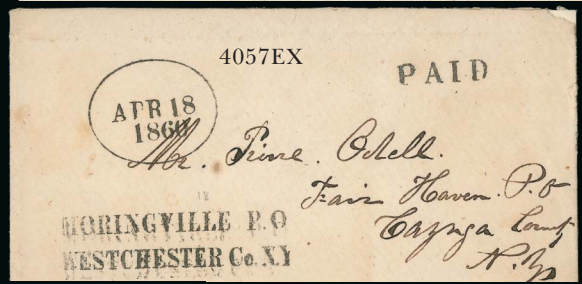 4057EX
PAID
APR 18
1860
Mr. Pine. Odell.
Fair Haven. P.O
Cayuga County
N.Y.
18
MORINGVILLE P.O
WESTCHESTER Co. N.Y